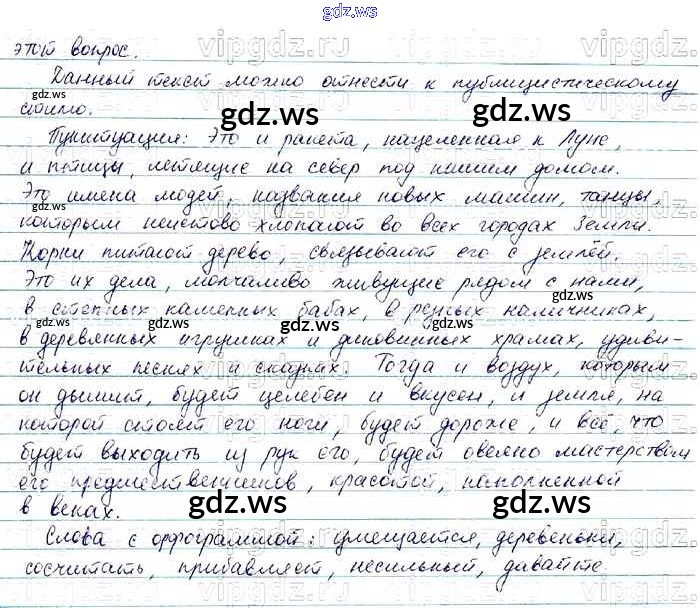 gdz.ws
этот вопрос.
Данный текст можно отнести к публицистическому
стилю.
Пунктуация: Это и ракета, нацеленная к Луне,
и птицы, летящие на север под нашим домом.
Это имена людей, названия новых машин, танцы,
которым неистово хлопают во всех городах Земли.
Корни питают дерево, связывают его с землёй.
Это их дела, молчаливо живущие рядом с нами,
в степных каменных бабах, в резных наличниках,
в деревянных игрушках и диковинных храмах, удиви-
тельных песнях и сказках. Тогда и воздух, которым
он дышит, будет целебен и вкусен, и земля, на
которой стоят его ноги, будет дороже, и всё, что
будет выходить из рук его, будет овеяно мастерством
его предшественников, красотой, накопленной
в веках.
Слова с орфограммой: умещается, деревеньки,
сосчитать, прибавляет, несильный, давайте.